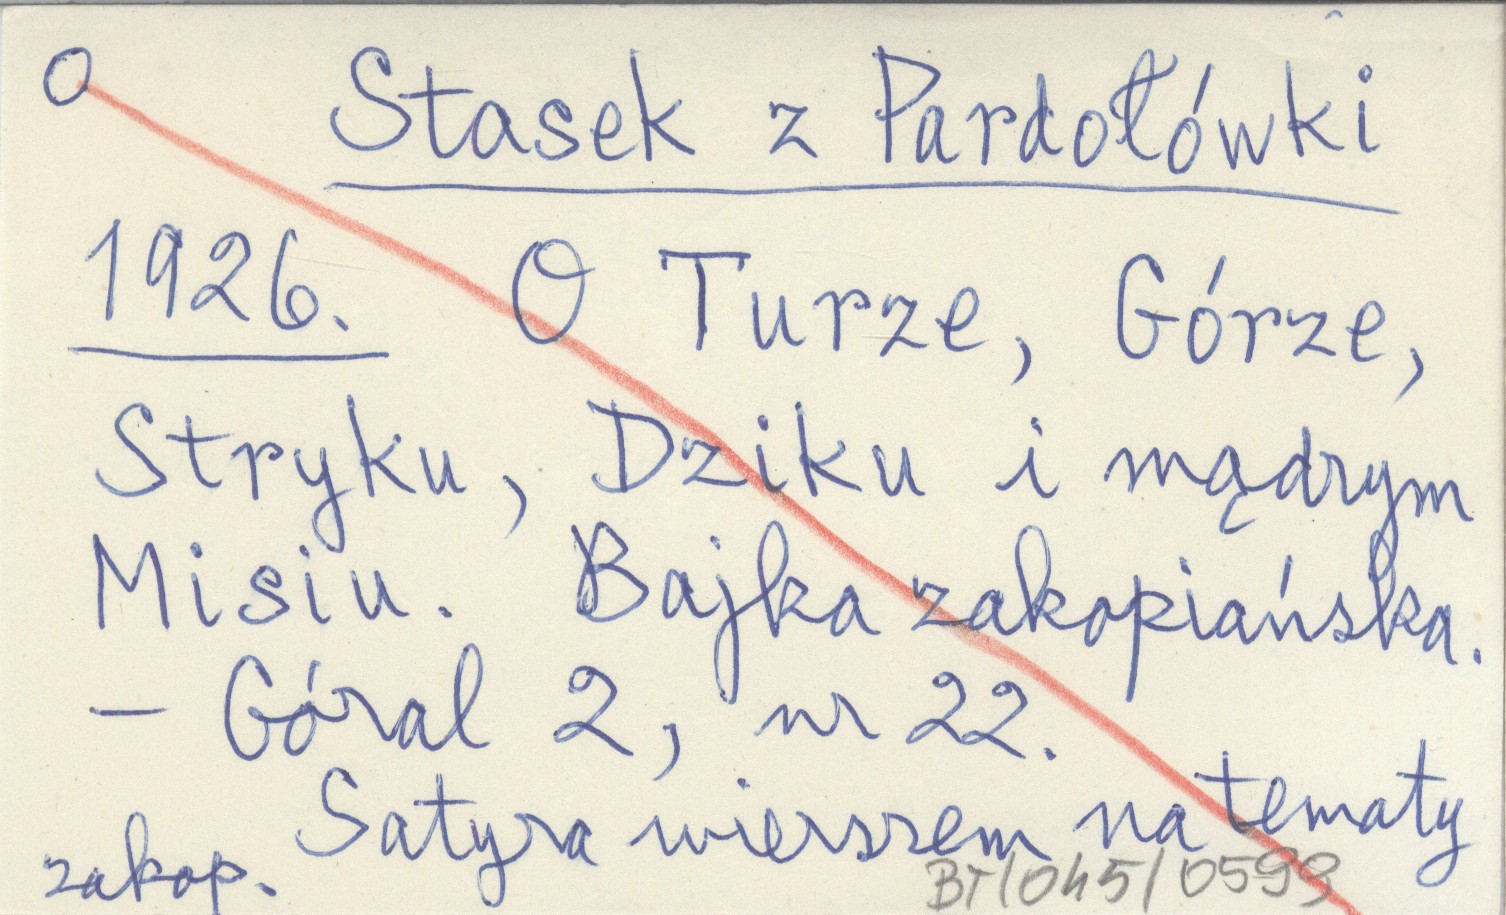 O Stasek z Pardołówki
1926. O Turze, Górze,
Stryku, Dziku i mądrym
Misiu. Bajka zakopiańska.
– Góral 2, nr 22.
Satyra wierszem na tematy
zakop.
BT/045/0599